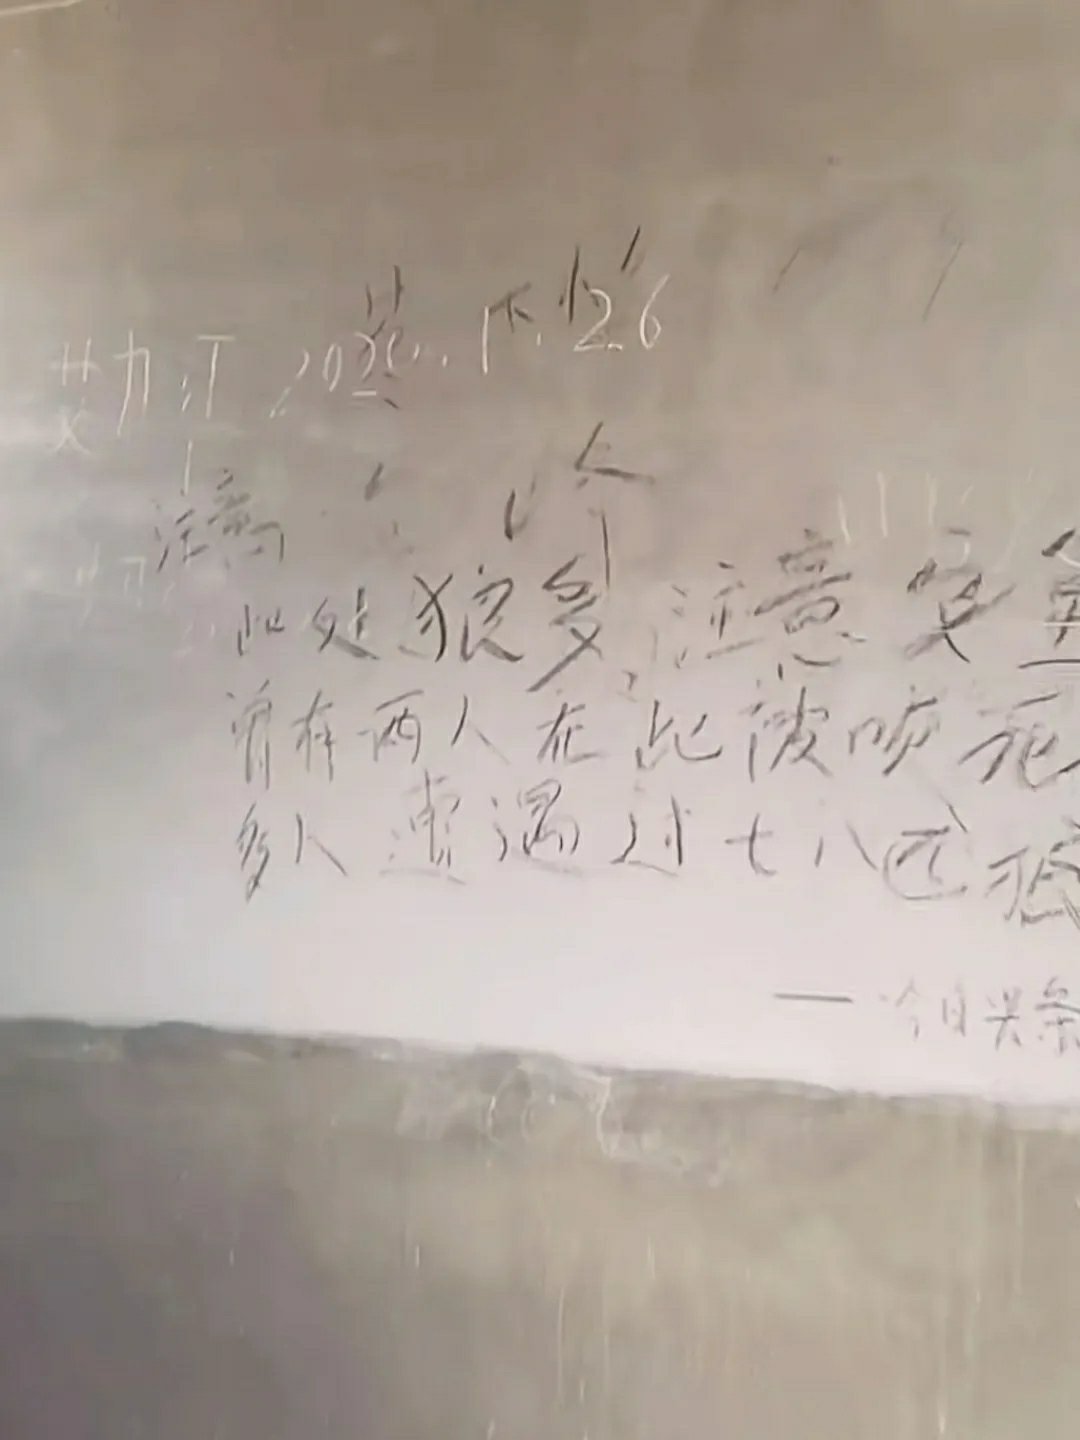 艾力江
注意
此处狼多,注意安全
曾有两人在此被咬死
多人遭遇过七八匹狼
— 今日头条